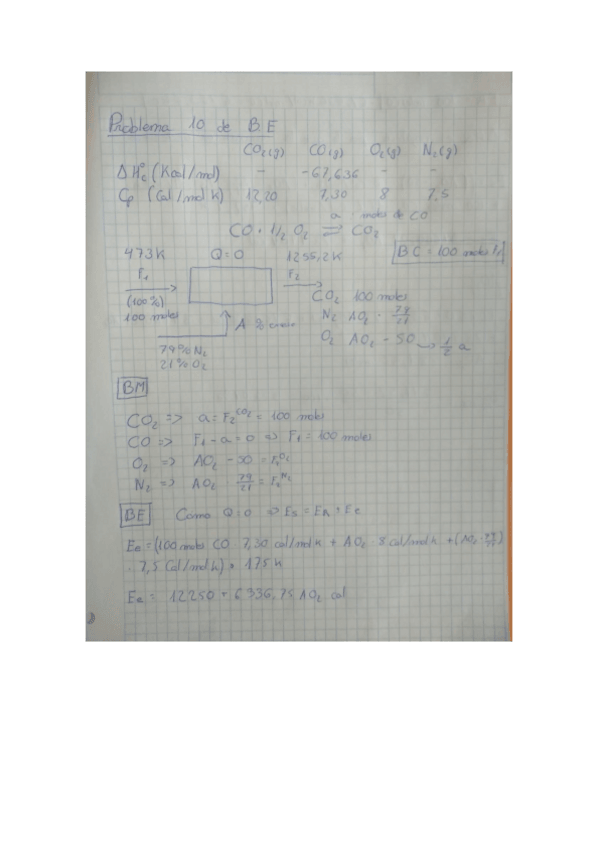 Problema 10 de B.E
CO₂(g) CO(g) O₂(g) N₂(g)
ΔH°c (Kcal/mol) - -67,636 - -
Cp (Cal/mol K) 12,20 7,30 8 7,5
a moles de CO
CO + 1/2 O₂ ⇌ CO₂
473K Q=0 1255,2K
BC = 100 moles F₁
F₁ F₂
(100%)
100 moles
CO₂ 100 moles
N₂ AO₂ · 79/21
O₂ AO₂ - 50 → 1/2 a
A % exceso
79% N₂
21% O₂
BM
CO₂ => a = F₂^CO₂ = 100 moles
CO => F₁ - a = 0 => F₁ = 100 moles
O₂ => AO₂ - 50 = F₂^O₂
N₂ => AO₂ · 79/21 = F₂^N₂
BE Como Q=0 => Es = ER + Ee
Ee = (100 moles CO · 7,30 cal/mol k + AO₂ · 8 cal/mol k + (AO₂ · 79/21)
· 7,5 Cal/mol k) * 175 k
Ee = 12250 + 6336,75 AO₂ cal